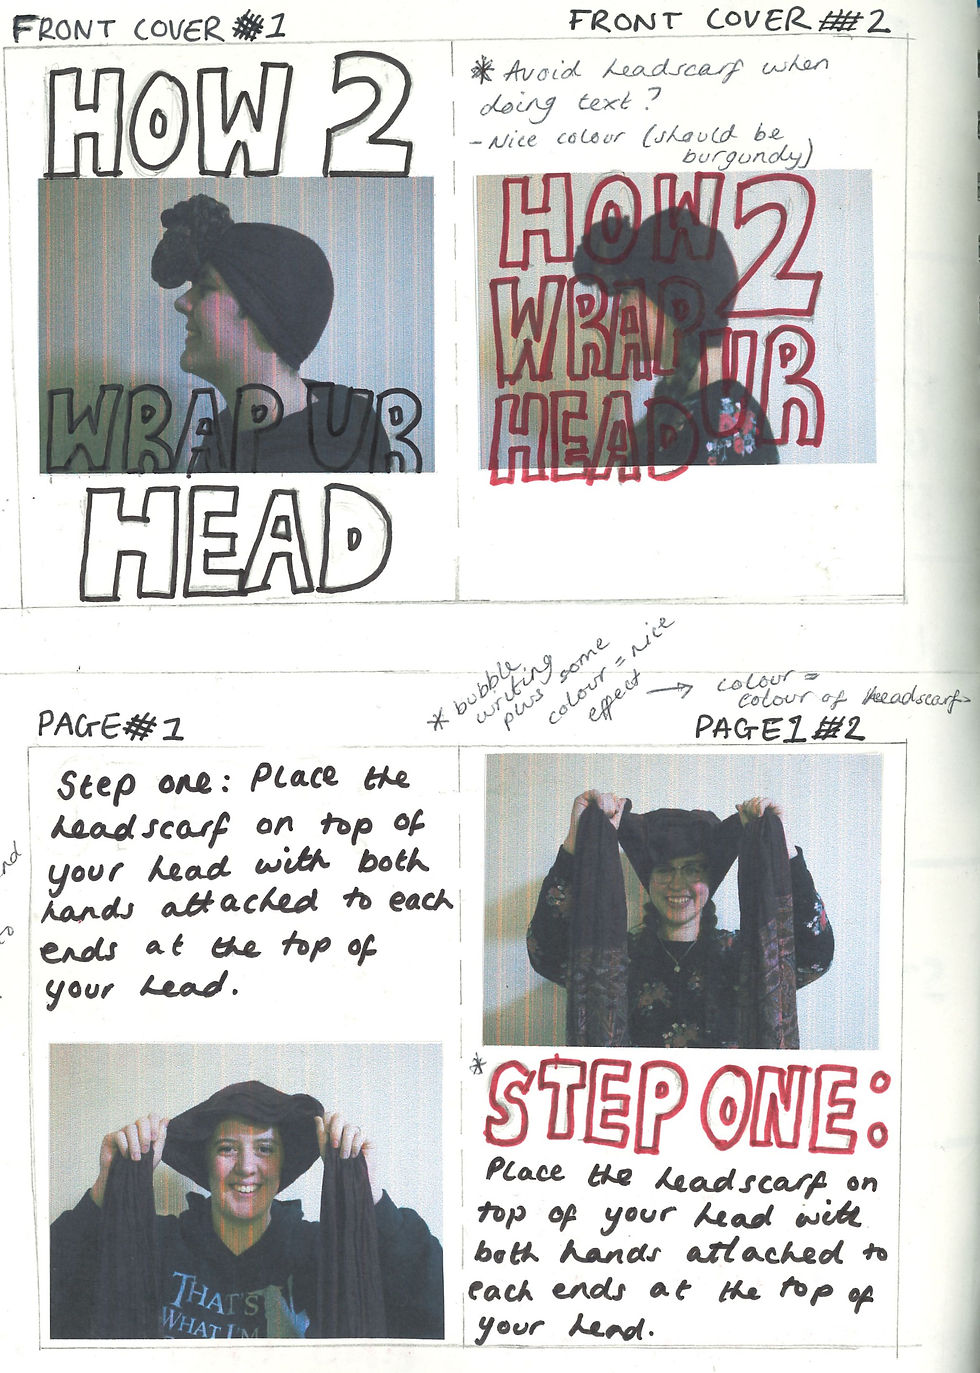 FRONT COVER #1
HOW 2
WRAP UR
HEAD
FRONT COVER #2
* Avoid headscarf when
doing text?
- Nice colour (should be
burgundy)
HOW 2
WRAP UR
HEAD
* bubble
writing
plus some
colour = nice
effect
→ colour =
colour of headscarf
PAGE #1
Step one: Place the
headscarf on top of
your head with both
hands attached to each
ends at the top of
your head.
THAT'S
WHAT I'M
PAGE 1 #2
* STEP ONE:
Place the headscarf on
top of your head with
both hands attached to
each ends at the top of
your head.